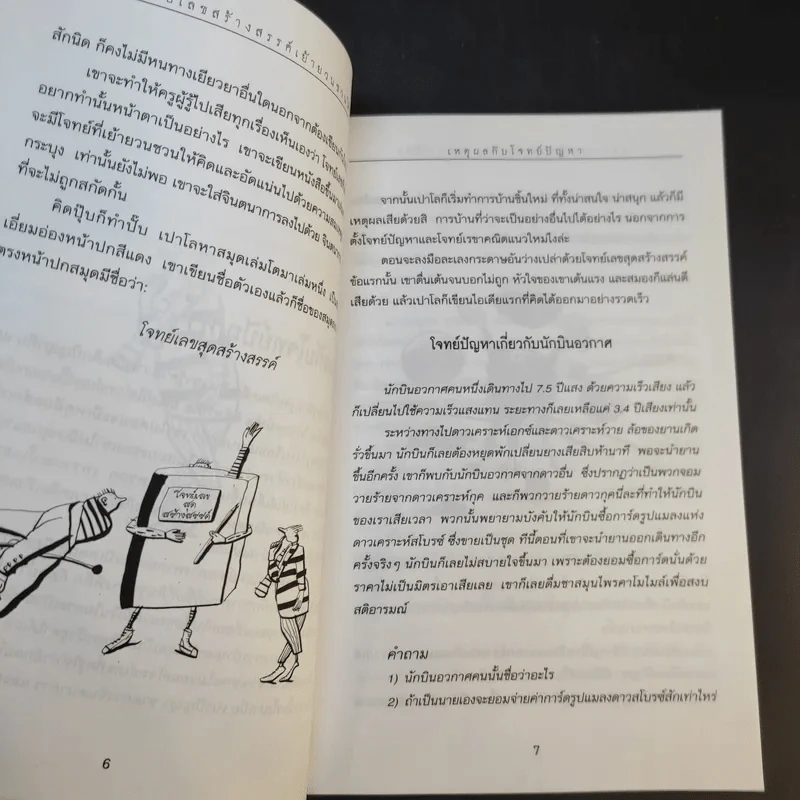 เลขสร้างสรรค์เย้ายวนชวน
สักนิด ก็คงไม่มีหนทางเยียวยาอื่นใดนอกจากต้องเขียน
เขาจะทำให้ครูผู้รู้ไปเสียทุกเรื่องเห็นเองว่า โจทย์
อยากทำนั้นหน้าตาเป็นอย่างไร เขาจะเขียนหนังสือขึ้นมา
จะมีโจทย์ที่เย้ายวนชวนให้คิดและอัดแน่นไปด้วยความ
กระบุง เท่านั้นยังไม่พอ เขาจะใส่จินตนาการลงไปด้วย
ที่จะไม่ถูกสกัดกั้น
คิดปุ๊บก็ทำปั๊บ เปาโลหาสมุดเล่มโตมาเล่มหนึ่ง
เอี่ยมอ่องหน้าปกสีแดง เขาเขียนชื่อตัวเองแล้วก็ชื่อของสมุด
ตรงหน้าปกสมุดมีชื่อว่า:
โจทย์เลขสุดสร้างสรรค์
โจทย์เลข
สุด
สร้างสรรค์
6
เหตุผลกับโจทย์ปัญหา
จากนั้นเปาโลก็เริ่มทำการบ้านชิ้นใหม่ ที่ทั้งน่าสนใจ น่าสนุก แล้วก็มี
เหตุผลเสียด้วยสิ การบ้านที่ว่าจะเป็นอย่างอื่นไปได้อย่างไร นอกจากการ
ตั้งโจทย์ปัญหาและโจทย์เรขาคณิตแนวใหม่ไงล่ะ
ตอนจะลงมือละเลงกระดาษอันว่างเปล่าด้วยโจทย์เลขสุดสร้างสรรค์
ข้อแรกนั้น เขาตื่นเต้นจนบอกไม่ถูก หัวใจของเขาเต้นแรง และสมองก็แล่นดี
เสียด้วย แล้วเปาโลก็เขียนไอเดียแรกที่คิดได้ออกมาอย่างรวดเร็ว
โจทย์ปัญหาเกี่ยวกับนักบินอวกาศ
นักบินอวกาศคนหนึ่งเดินทางไป 7.5 ปีแสง ด้วยความเร็วเสียง แล้ว
ก็เปลี่ยนไปใช้ความเร็วแสงแทน ระยะทางก็เลยเหลือแค่ 3.4 ปีเสียงเท่านั้น
ระหว่างทางไปดาวเคราะห์เอกซ์และดาวเคราะห์วาย ล้อของยานเกิด
รั่วขึ้นมา นักบินก็เลยต้องหยุดพักเปลี่ยนยางเสียสิบห้านาที พอจะนำยาน
ขึ้นอีกครั้ง เขาก็พบกับนักบินอวกาศจากดาวอื่น ซึ่งปรากฏว่าเป็นพวกจอม
วายร้ายจากดาวเคราะห์กุค และก็พวกวายร้ายดาวกุคนี่ละที่ทำให้นักบิน
ของเราเสียเวลา พวกนั้นพยายามบังคับให้นักบินซื้อการ์ดรูปแมลงแห่ง
ดาวเคราะห์สโบรซ์ ซึ่งขายเป็นชุด ทีนี้ตอนที่เขาจะนำยานออกเดินทางอีก
ครั้งจริงๆ นักบินก็เลยไม่สบายใจขึ้นมา เพราะต้องยอมซื้อการ์ดนั่นด้วย
ราคาไม่เป็นมิตรเอาเสียเลย เขาก็เลยดื่มชาสมุนไพรคาโมไมล์เพื่อสงบ
สติอารมณ์
คำถาม
1) นักบินอวกาศคนนั้นชื่อว่าอะไร
2) ถ้าเป็นนายเองจะยอมจ่ายค่าการ์ดรูปแมลงดาวสโบรซ์สักเท่าไหร่
7